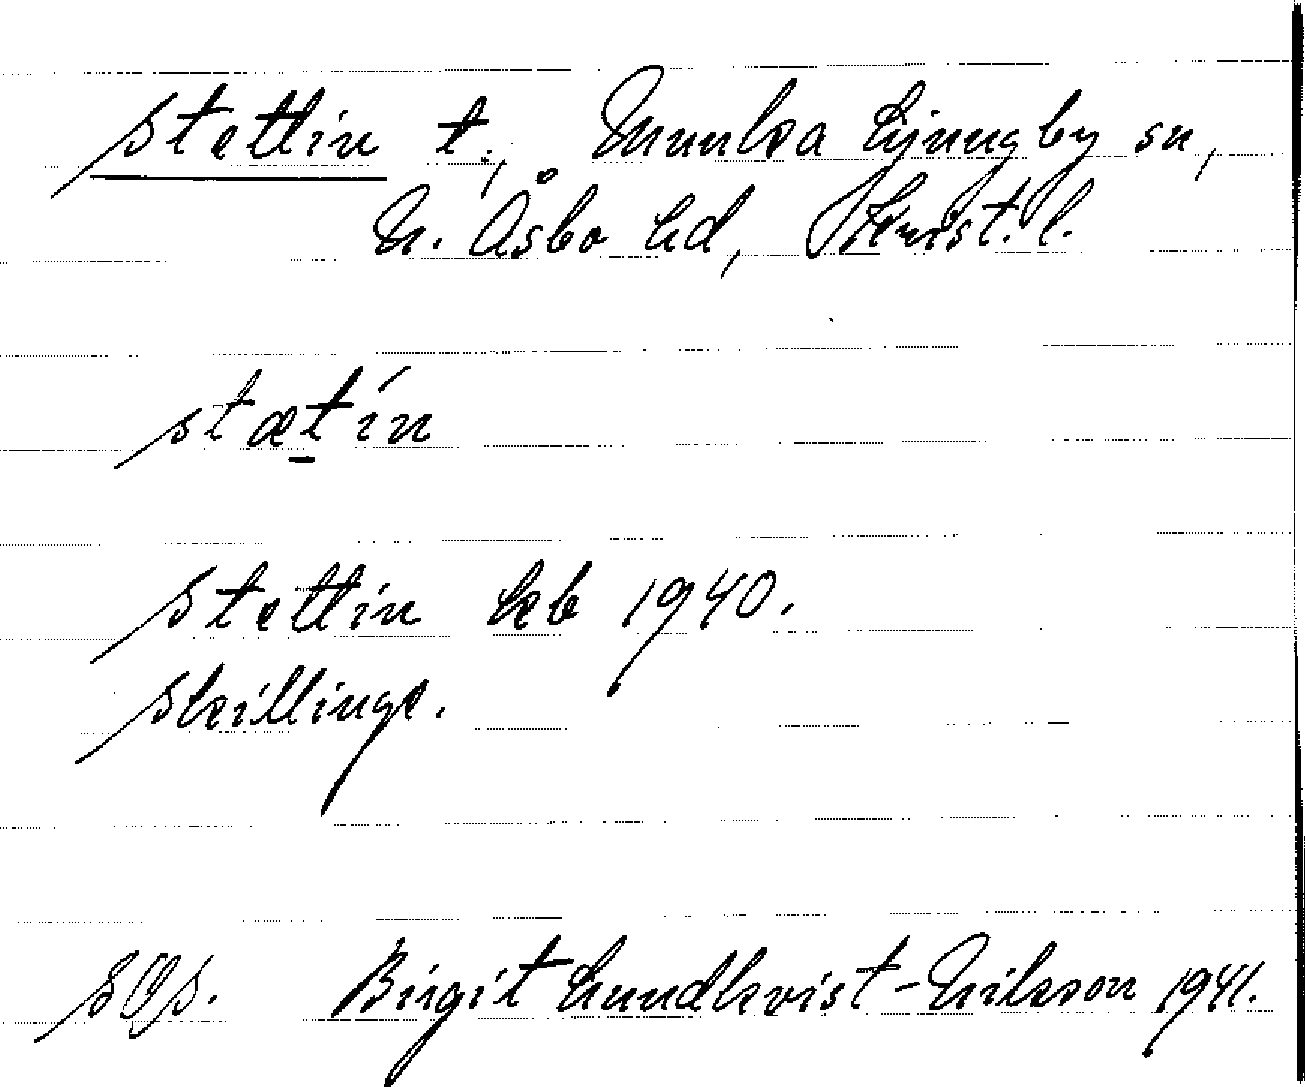 Stettin t., Munka Ljungby sn,
N. Åsbo hd, Krist. l.
stætín
Stettin kb 1940.
Skillinge.
SOS. Birgit Lundkvist-Nilsson 1941.